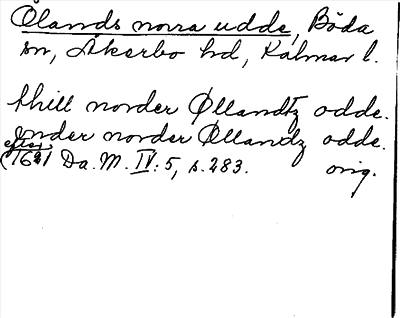 Ölands norra udde, Böda
sn, Åkerbo hd, Kalmar l.
thill norder Øllandtz odde.
under norder Øllandz odde.
efter
(1621 Da. M. IV: 5, s. 283. orig.